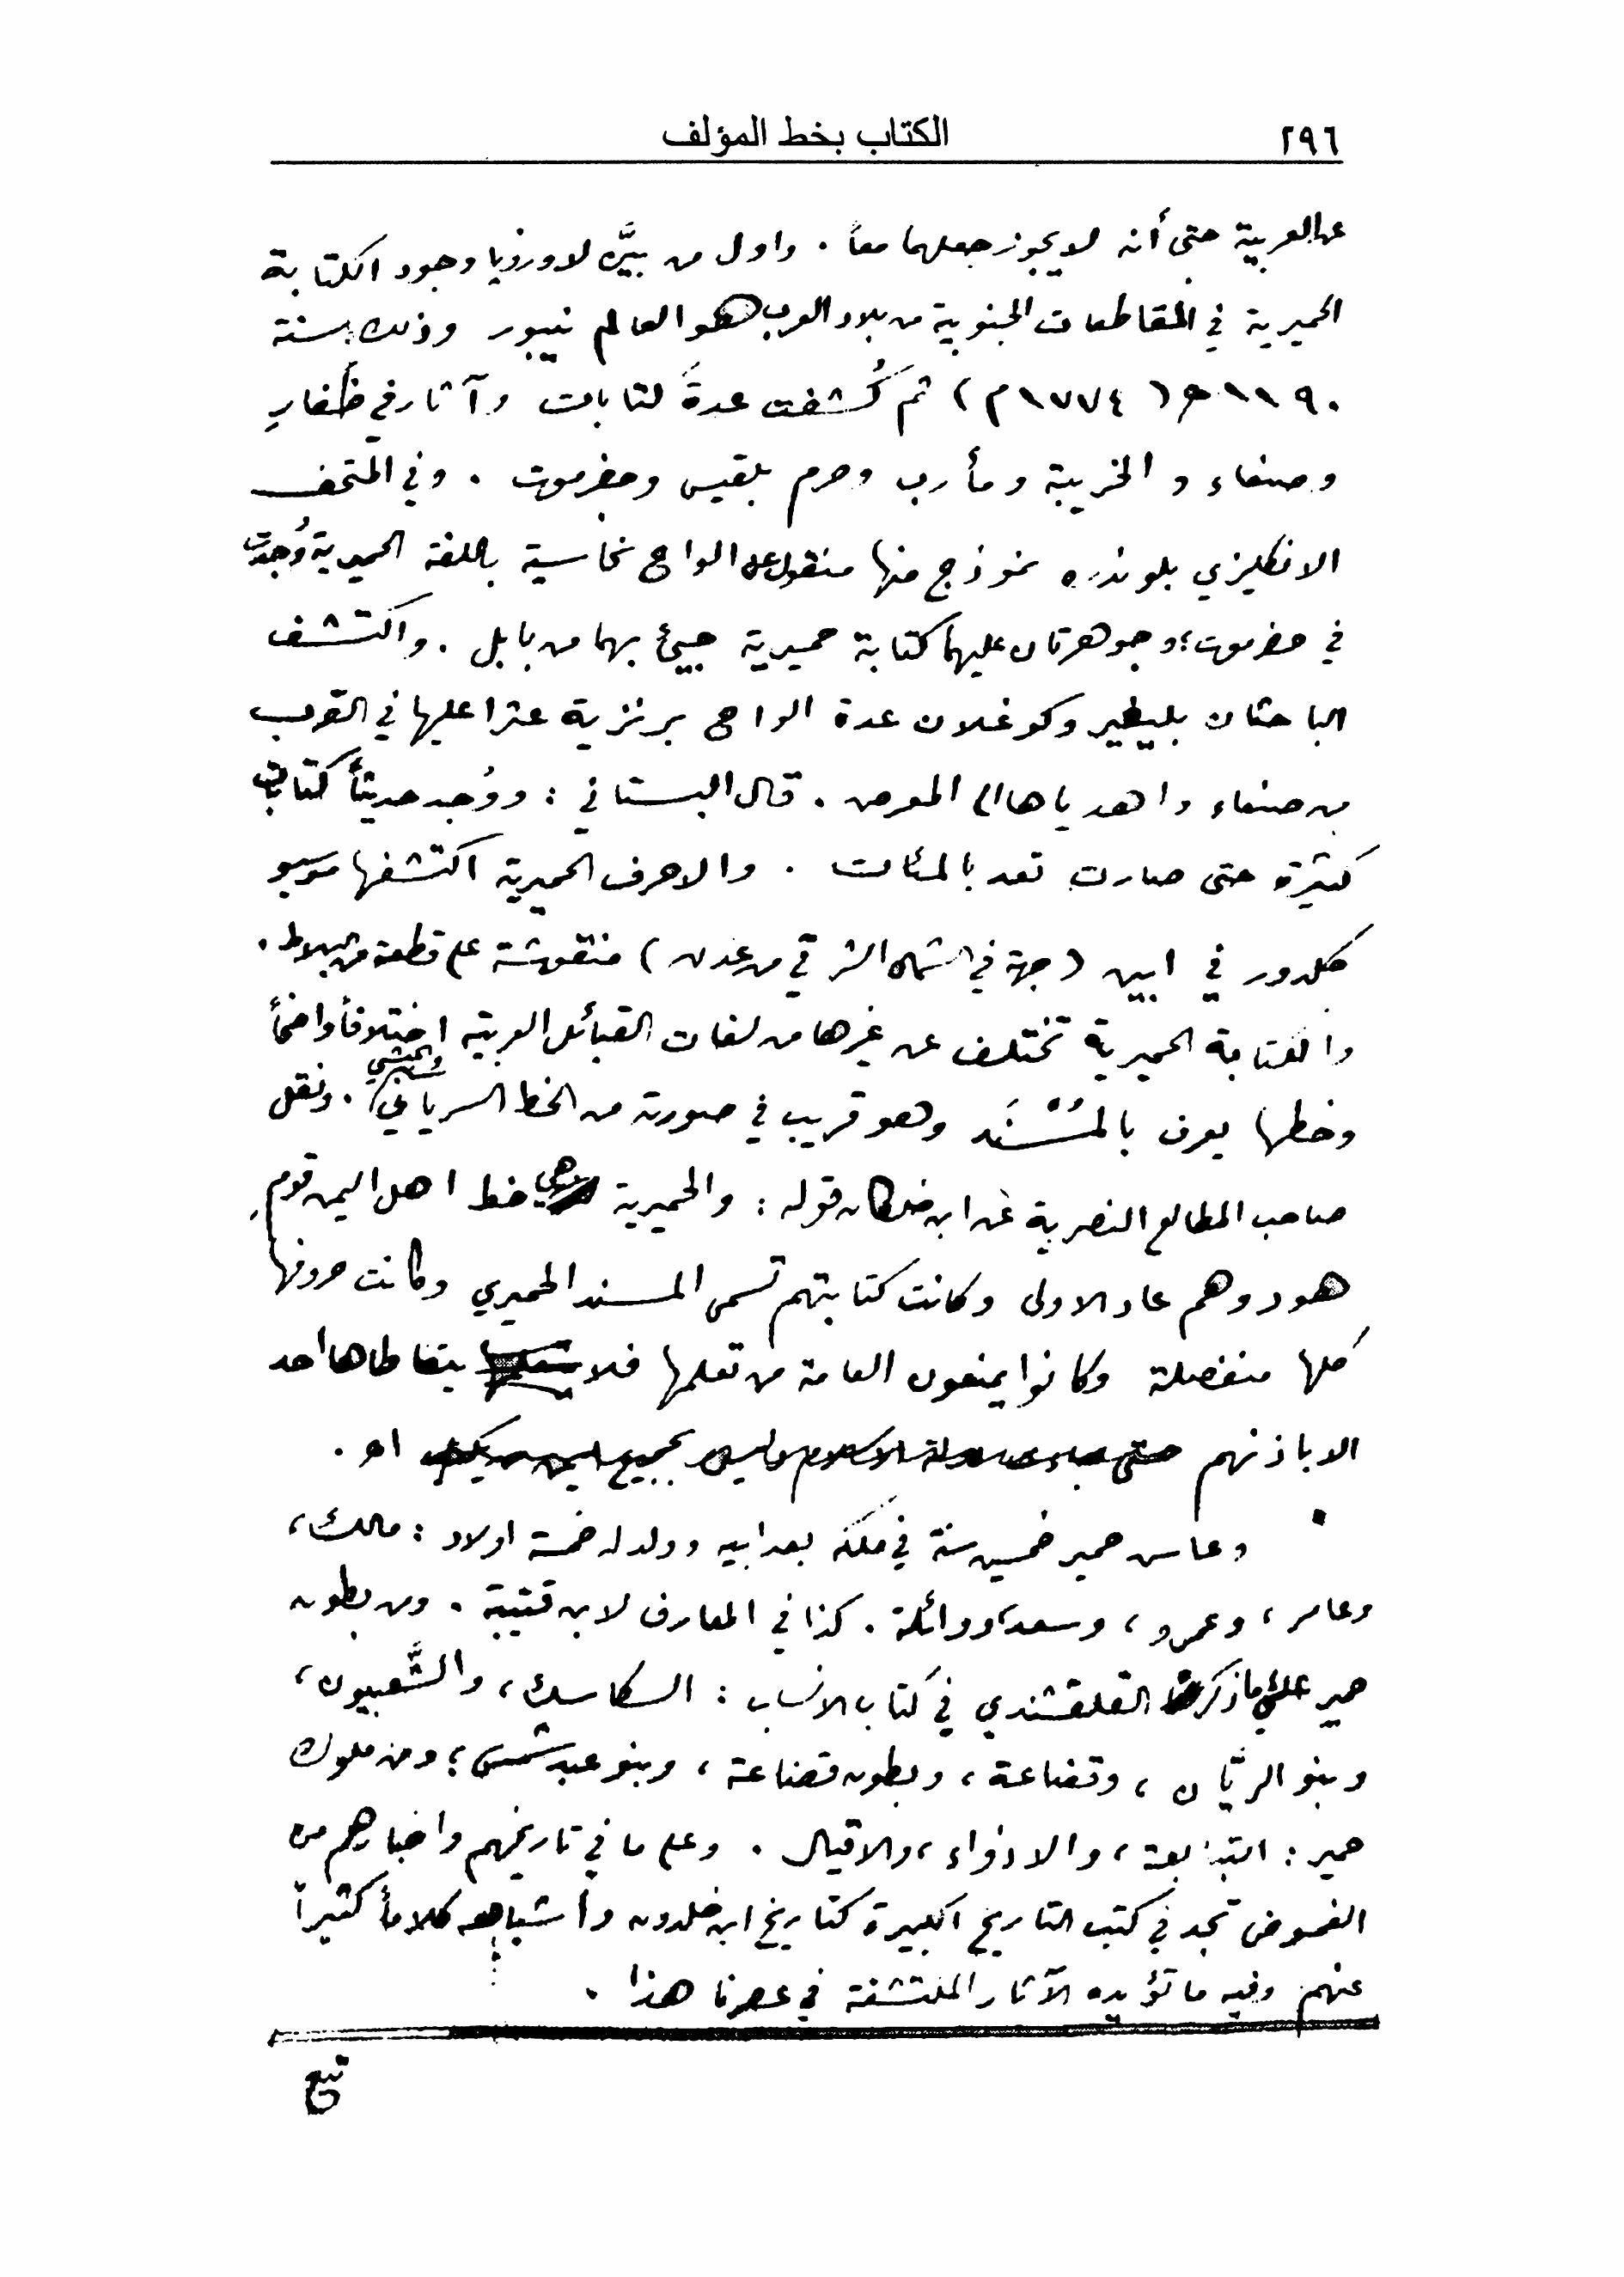 ٢٩٦ الكتاب بخط المؤلف
عن العربية حتى أنه لا يجوز جعلهما معاً . واول من بيَّن لاوروپا وجود الكتابة
الحميرية في المقاطعات الجنوبية من بلاد العرب هو العالم نيبور وذلك سنة
١١٩٠ هـ ( ١٧٧٤ م ) ثم كُشفت عدةُ كتابات وآثار في ظَفارِ
وصنعاء والخريبة ومأرب وحرم بلقيس وحضرموت . وفي المتحف
الانكليزي بلوندره نموذج منها منقول عن الواح نحاسية باللغة الحميرية وُجدت
في حضرموت ؛ وجوهرتان عليهما كتابة حميرية جيئ بهما من بابل . واكتشف
الباحثان بليفير وكوغلان عدة الواح برنزية عثرا عليها في القرب
من صنعاء واهدياها الى المعرض . قال البستاني : ووُجد حديثاً كتابات
كثيرة حتى صارت تعد بالمئات . والاحرف الحميرية اكتشفها موسيو
كلدور في ابين ( جهة في الشمال الشرقي من عدن ) منقوشة على قطعة من البلاط .
والكتابة الحميرية تختلف عن غيرها من لغات القبائل العربية اختلافاً واضحاً
وخطها يعرف بالمُسْنَد وهو قريب في صورته من الخط السرياني والحبشي . ونقل
صاحب المطالع النصرية عن ابن خلكان قوله : والحميرية هي خط اهل اليمن قوم
هود وهم عاد الاولى وكانت كتابتهم تسمى المسند الحميري وكانت حروفها
كلها منفصلة وكانوا يمنعون العامة من تعلمها فلا يتعاطاها احد
الا باذنهم حتى جاءت دولة الاسلام وليس بجميع اليمن من يكتب اهـ .
وعاش حمير خمسين سنة في ملكه بعد ابيه وولد له خمسة اولاد : مالك ،
وعامر ، وعمرو ، وسعد ، ووائلة . كذا في المعارف لابن قتيبة . ومن بطون
حمير على ما ذكره القلقشندي في كتاب الانساب : السكاسك ، والشَّعبيون ،
وبنو الريَّان ، وقضاعة ، وبطون قضاعة ، وبنو عبد شمس ؛ ومن ملوك
حمير : التبابعة ، والاذواء ، والاقيال . وعلى ما في تاريخهم واخبارهم من
الغموض تجد في كتب التاريخ الكبيرة كتاريخ ابن خلدون وأشباهه كلاماً كثيراً
عنهم وفيه ما تؤيده الآثار المكتشفة في عصرنا هذا .
تبع